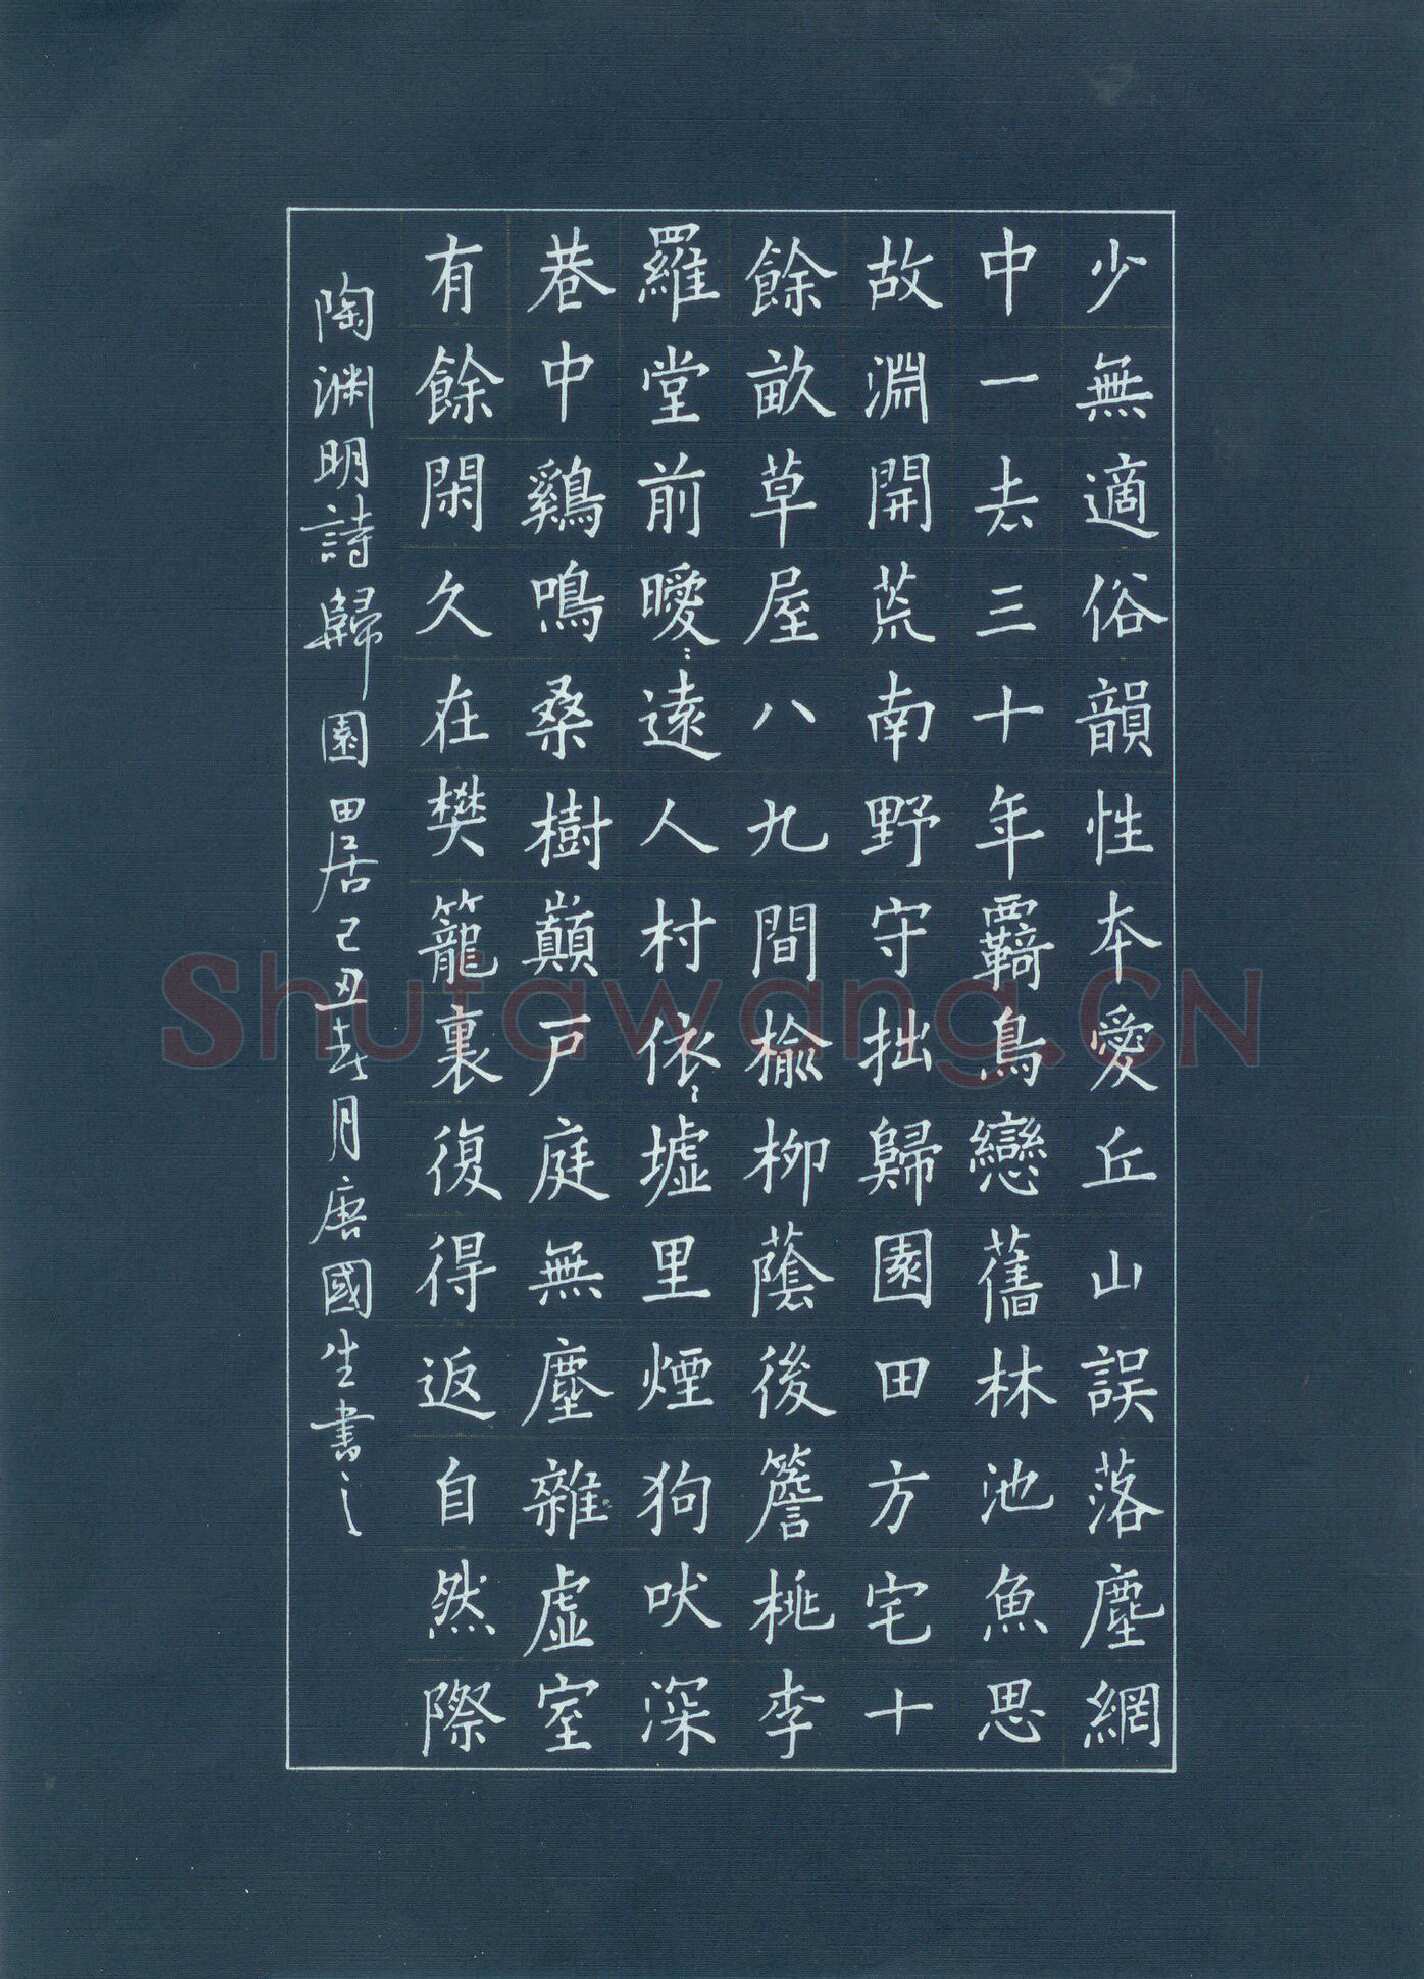 少無適俗韻性本愛丘山誤落塵網
中一去三十年覉鳥戀舊林池魚思
故淵開荒南野守拙歸園田方宅十
餘畝草屋八九間榆柳蔭後簷桃李
羅堂前曖：遠人村依：墟里煙狗吠深
巷中鷄鳴桑樹巔戶庭無塵雜虛室
有餘閑久在樊籠裏復得返自然際
陶渊明詩歸園田居己丑春月唐國生書之
Shufawang.CN